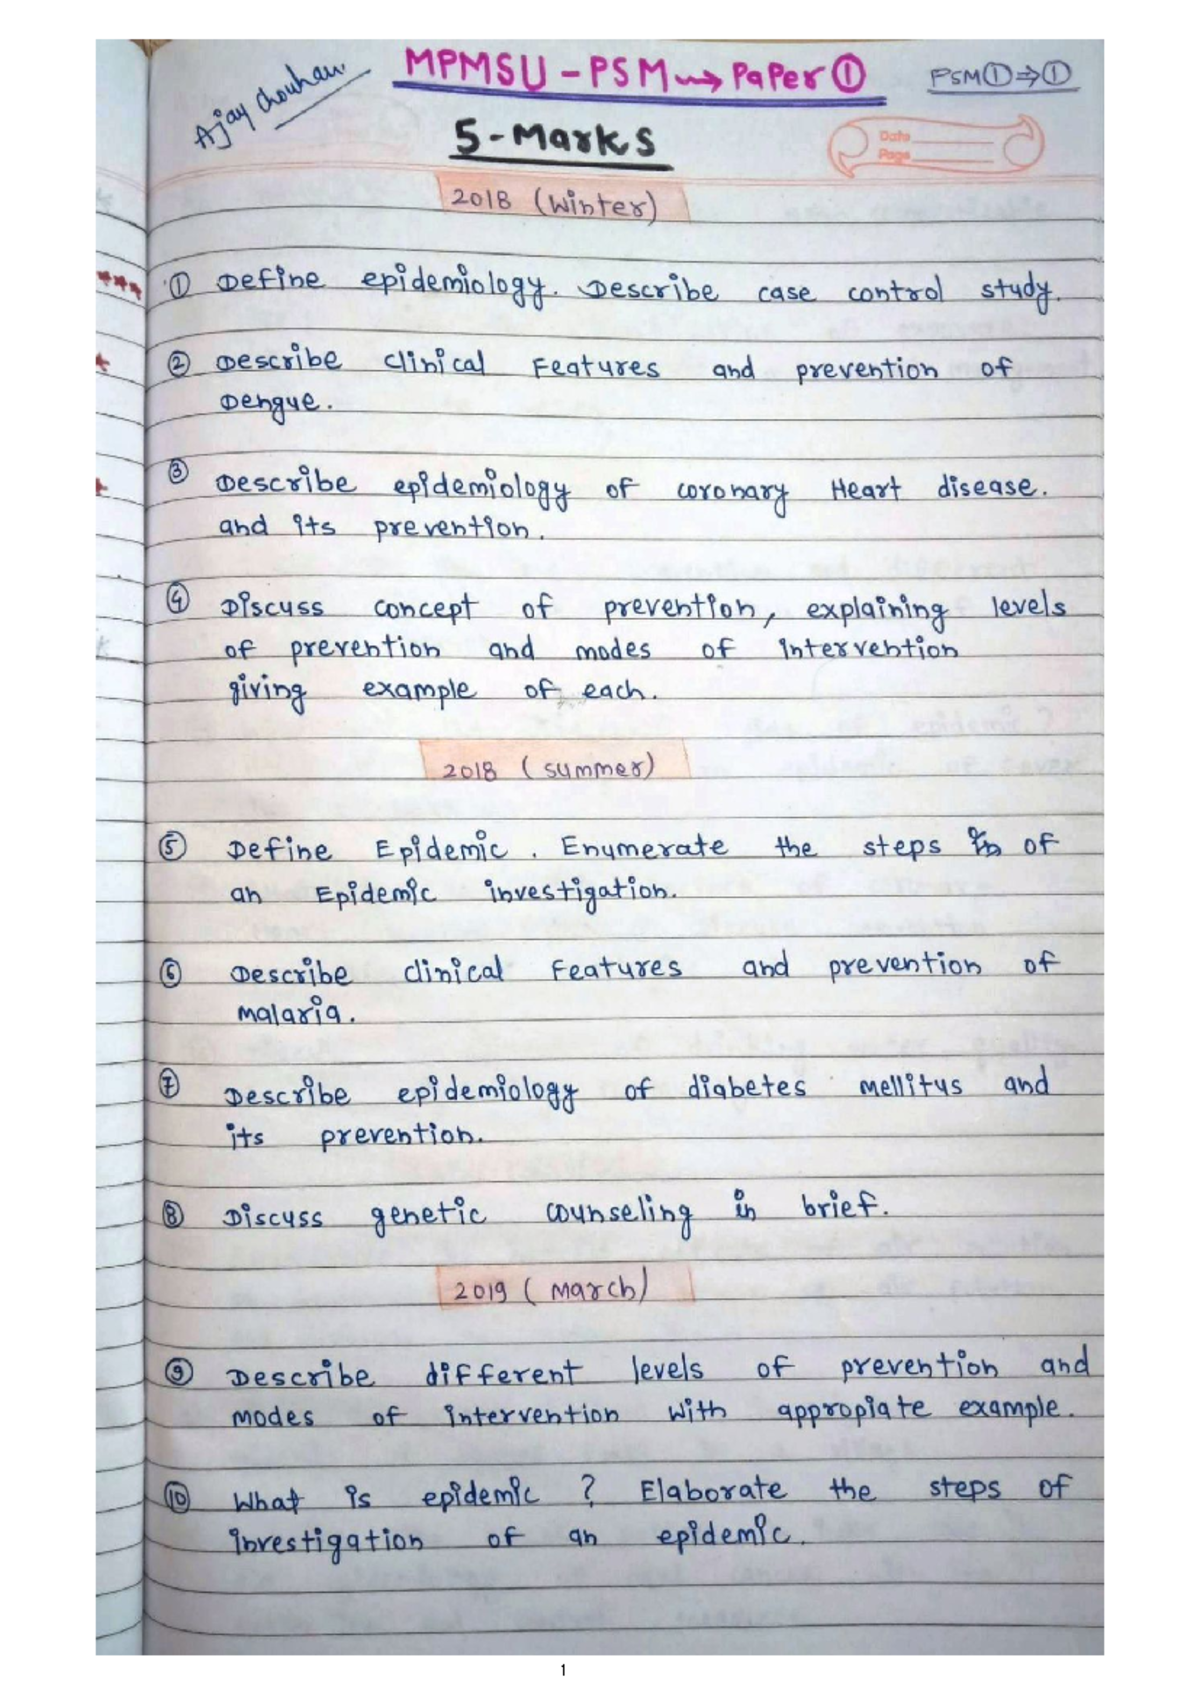 Ajay Chouhan
MPMSU - PSM → Paper ①
PSM① ⇒ ①
5 - Marks
Date
Page
2018 (Winter)
*** ① Define epidemiology. Describe case control study.
* ② Describe clinical Features and prevention of
Dengue.
③ Describe epidemiology of coronary Heart disease.
and its prevention.
④ Discuss concept of prevention, explaining levels
of prevention and modes of intervention
giving example of each.
2018 (summer)
⑤ Define Epidemic. Enumerate the steps of
an Epidemic investigation.
⑥ Describe clinical Features and prevention of
malaria.
⑦ Describe epidemiology of diabetes mellitus and
its prevention.
⑧ Discuss genetic counseling in brief.
2019 (March)
⑨ Describe different levels of prevention and
modes of intervention with appropiate example.
⑩ What is epidemic ? Elaborate the steps of
investigation of an epidemic.
1